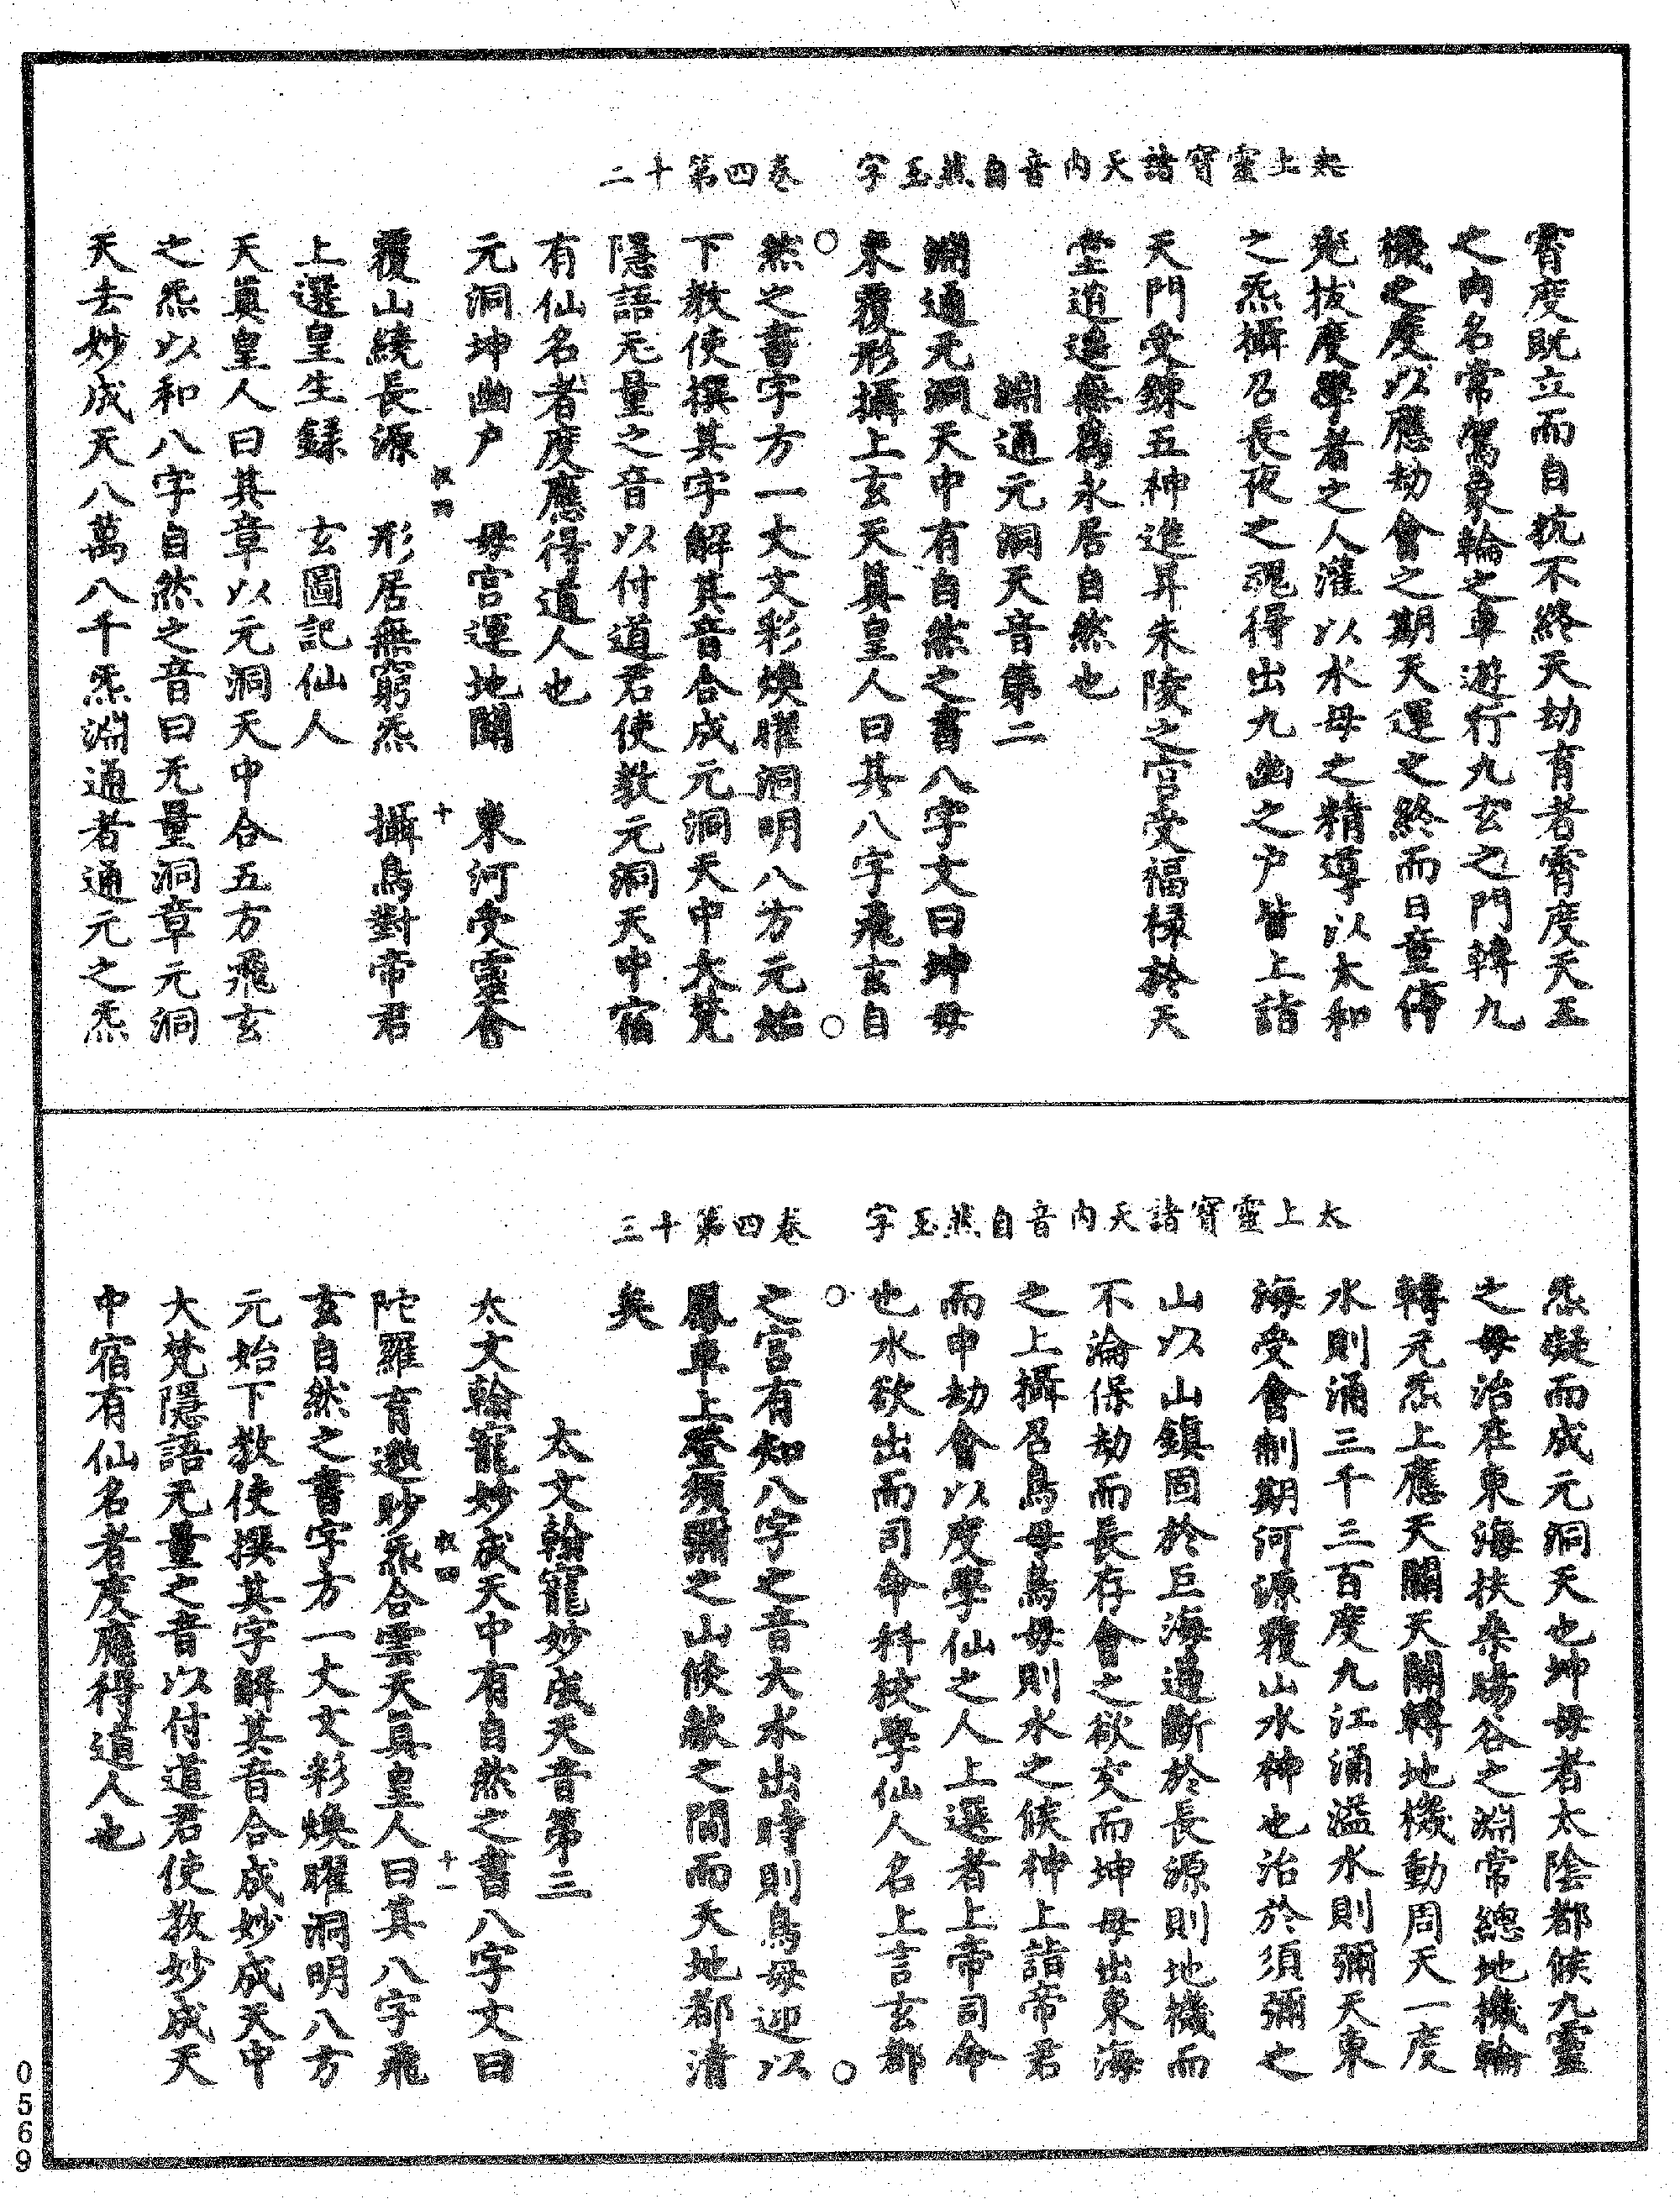 太上靈寶諸天内音自然玉字　卷四第十二
霄度旣立而自抗不終天劫育者霄度天王
之内名常駕景輪之車遊行九玄之門轉九
機之度以應劫會之期天運之終而日童停
光拔度學者之人灌以水母之精導以太和
之炁攝召長夜之魂得出九幽之户皆上詣
天門受鍊五神進昇朱陵之宮受福禄於天
堂逍遥無爲永居自然也
淵通元洞天音第二
淵通元洞天中有自然之書八字文曰坤母
東覆形攝上玄天真皇人曰其八字飛玄自
然之書字方一丈文彩煥曜洞明八方元始
下教使撰其字解其音合成元洞天中大梵
隱語无量之音以付道君使教元洞天中宿
有仙名者度應得道人也
元洞坤幽户　母宮運地關　東河受靈會
覆山繞長源　形居無窮炁　攝鳥對帝君
上選皇生録　玄圖記仙人
天真皇人曰其章以元洞天中合五方飛玄
之炁以和八字自然之音曰无量洞章元洞
天去妙成天八萬八千炁淵通者通元之炁
太上靈寶諸天内音自然玉字　卷四第十三
炁凝而成元洞天也坤母者太陰都候九靈
之母治在東海扶桒暘谷之淵常總地機輪
轉元炁上應天關天關轉地機動周天一度
水則涌三千三百度九江涌溢水則彌天東
海受會制期河源覆山水神也治於須彌之
山以山鎮固於巨海過斷於長源則地機而
不淪保劫而長存會之欲交而坤母出東海
之上攝召鳥母鳥母則水之候神上詣帝君
而申劫會以度學仙之人上選者上帝司命
也水欲出而司命料校學仙人名上言玄都
之宮有知八字之音大水出時則鳥母迎以
鳳車上登須彌之山條歘之間而天地都清
矣
太文翰寵妙成天音第三
太文翰寵妙成天中有自然之書八字文曰
陀羅育邈眇炁合雲天真皇人曰其八字飛
玄自然之書字方一丈文彩煥曜洞明八方
元始下教使撰其字解其音合成妙成天中
大梵隱語元量之音以付道君使教妙成天
中宿有仙名者度應得道人也
十
十一
0569